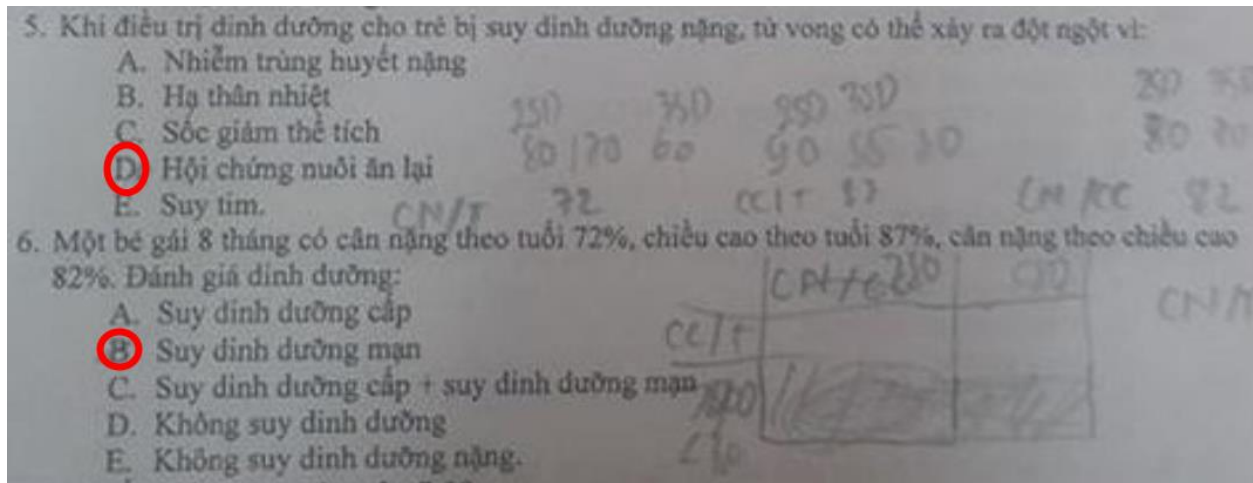 5. Khi điều trị dinh dưỡng cho trẻ bị suy dinh dưỡng nặng, tử vong có thể xảy ra đột ngột vì:
A. Nhiễm trùng huyết nặng
B. Hạ thân nhiệt
C. Sốc giảm thể tích
D. Hội chứng nuôi ăn lại
E. Suy tim.
CN/T 72 CC/T 87 CN/CC 82
6. Một bé gái 8 tháng có cân nặng theo tuổi 72%, chiều cao theo tuổi 87%, cân nặng theo chiều cao
82%. Đánh giá dinh dưỡng:
A. Suy dinh dưỡng cấp
B. Suy dinh dưỡng mạn
C. Suy dinh dưỡng cấp + suy dinh dưỡng mạn
D. Không suy dinh dưỡng
E. Không suy dinh dưỡng nặng.
CC/T